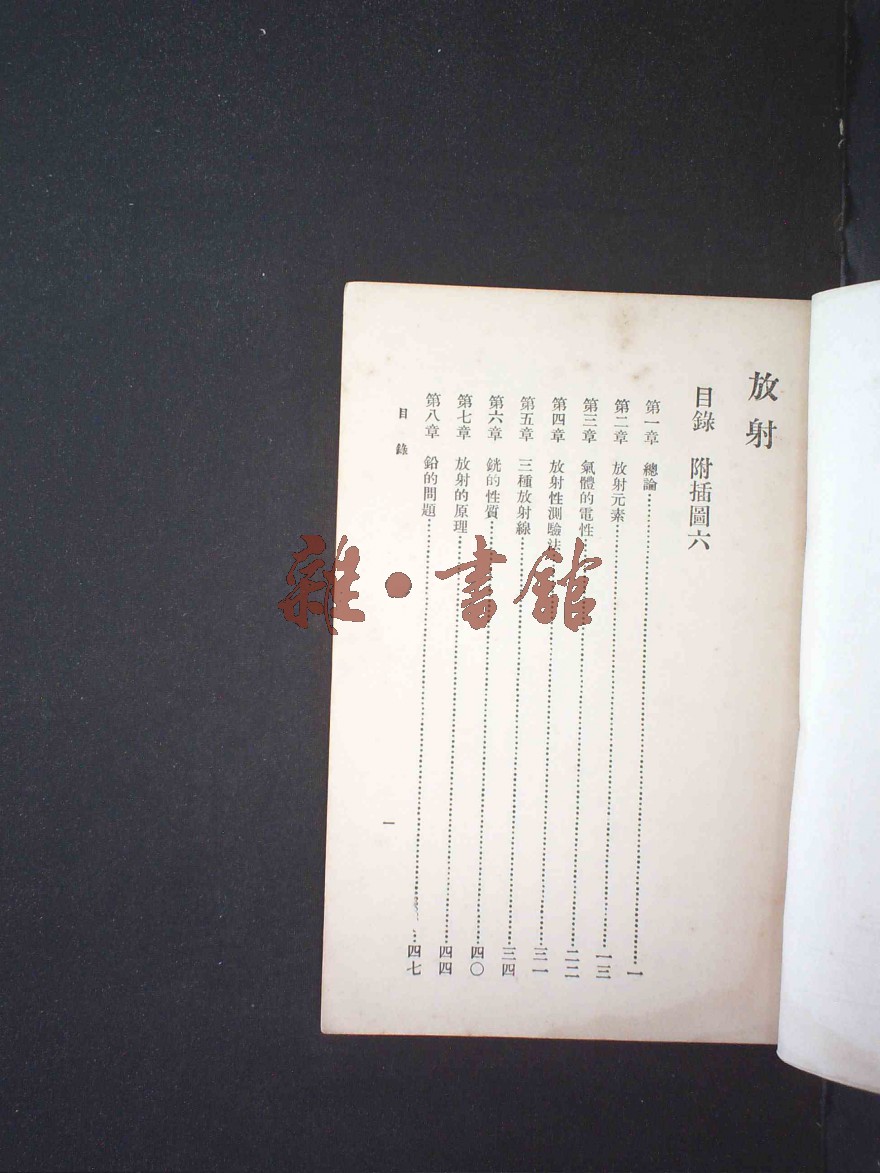 放射
目錄 附插圖六
第一章 總論⋯⋯⋯⋯⋯⋯⋯⋯一
第二章 放射元素⋯⋯⋯⋯⋯⋯⋯⋯一三
第三章 氣體的電性⋯⋯⋯⋯⋯⋯⋯⋯二二
第四章 放射性測驗法⋯⋯⋯⋯⋯⋯⋯⋯三一
第五章 三種放射線⋯⋯⋯⋯⋯⋯⋯⋯三四
第六章 銧的性質⋯⋯⋯⋯⋯⋯⋯⋯四〇
第七章 放射的原理⋯⋯⋯⋯⋯⋯⋯⋯四四
第八章 鉛的問題⋯⋯⋯⋯⋯⋯⋯⋯四七
目錄
一
雜·書館